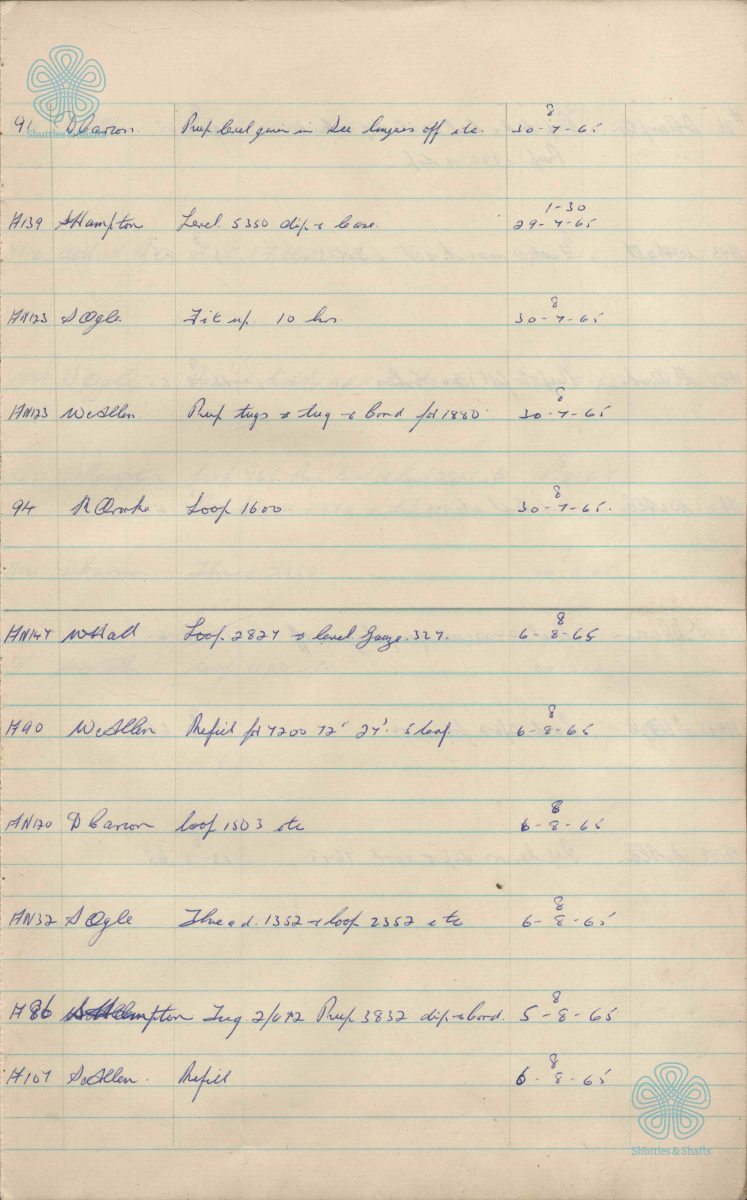 8
91 D Carson. Prep level given in See lingoes off etc. 30-7-65
Shuttles & Shafts
1-30
H139 S Hampton Level. 5350 dip & lease. 29-7-65
8
HN123 S Ogle Fit up. 10 hrs. 30-7-65
8
HN123 W Allen Prep tugs & tug & bord for 1880 30-7-65
8
94 R Loop 1600 30-7-65.
8
HN147 W Hall Loop. 2827 & level Gauze. 327. 6-8-65
8
H90 W Allen Refill for 7200 72" 27". 5 leaf. 6-8-65
8
HN120 D Carson loop 1503 etc 6-8-65
8
HN32 S Ogle Thread. 1352 & loop 2352 etc 6-8-65
8
H86 Hampton Tug. Prep 3832 dip & bord. 5-8-65
8
H107 S Allen. Refill 6-8-65
Shuttles & Shafts